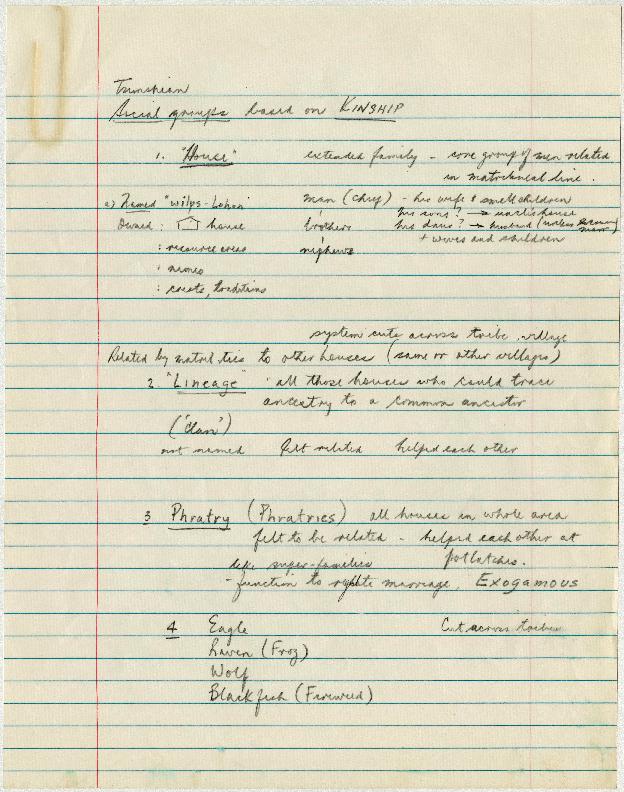 Tsimshian
Social groups based on KINSHIP
1. "House" extended family - core group of men related
in matrilineal line.
a) Named "wilps-
man (chief) - his wife & small children
his sons? → uncle's house
Owned: house brothers his daus? → husband (unless
+ wives and children
: resource areas nephews
: names
: crests, traditions
system cuts across tribe, village
Related by matril ties to other houses (same or other villages)
2. "Lineage" : all those houses who could trace
ancestry to a common ancestor
("clan")
not named felt related helped each other
3 Phratry (Phratries) all houses in whole area
felt to be related - helped each other at
potlatches.
like super-families
- function to regulate marriage. Exogamous
4 Eagle Cut across tribes
Raven (Frog)
Wolf
Blackfish (Fireweed)